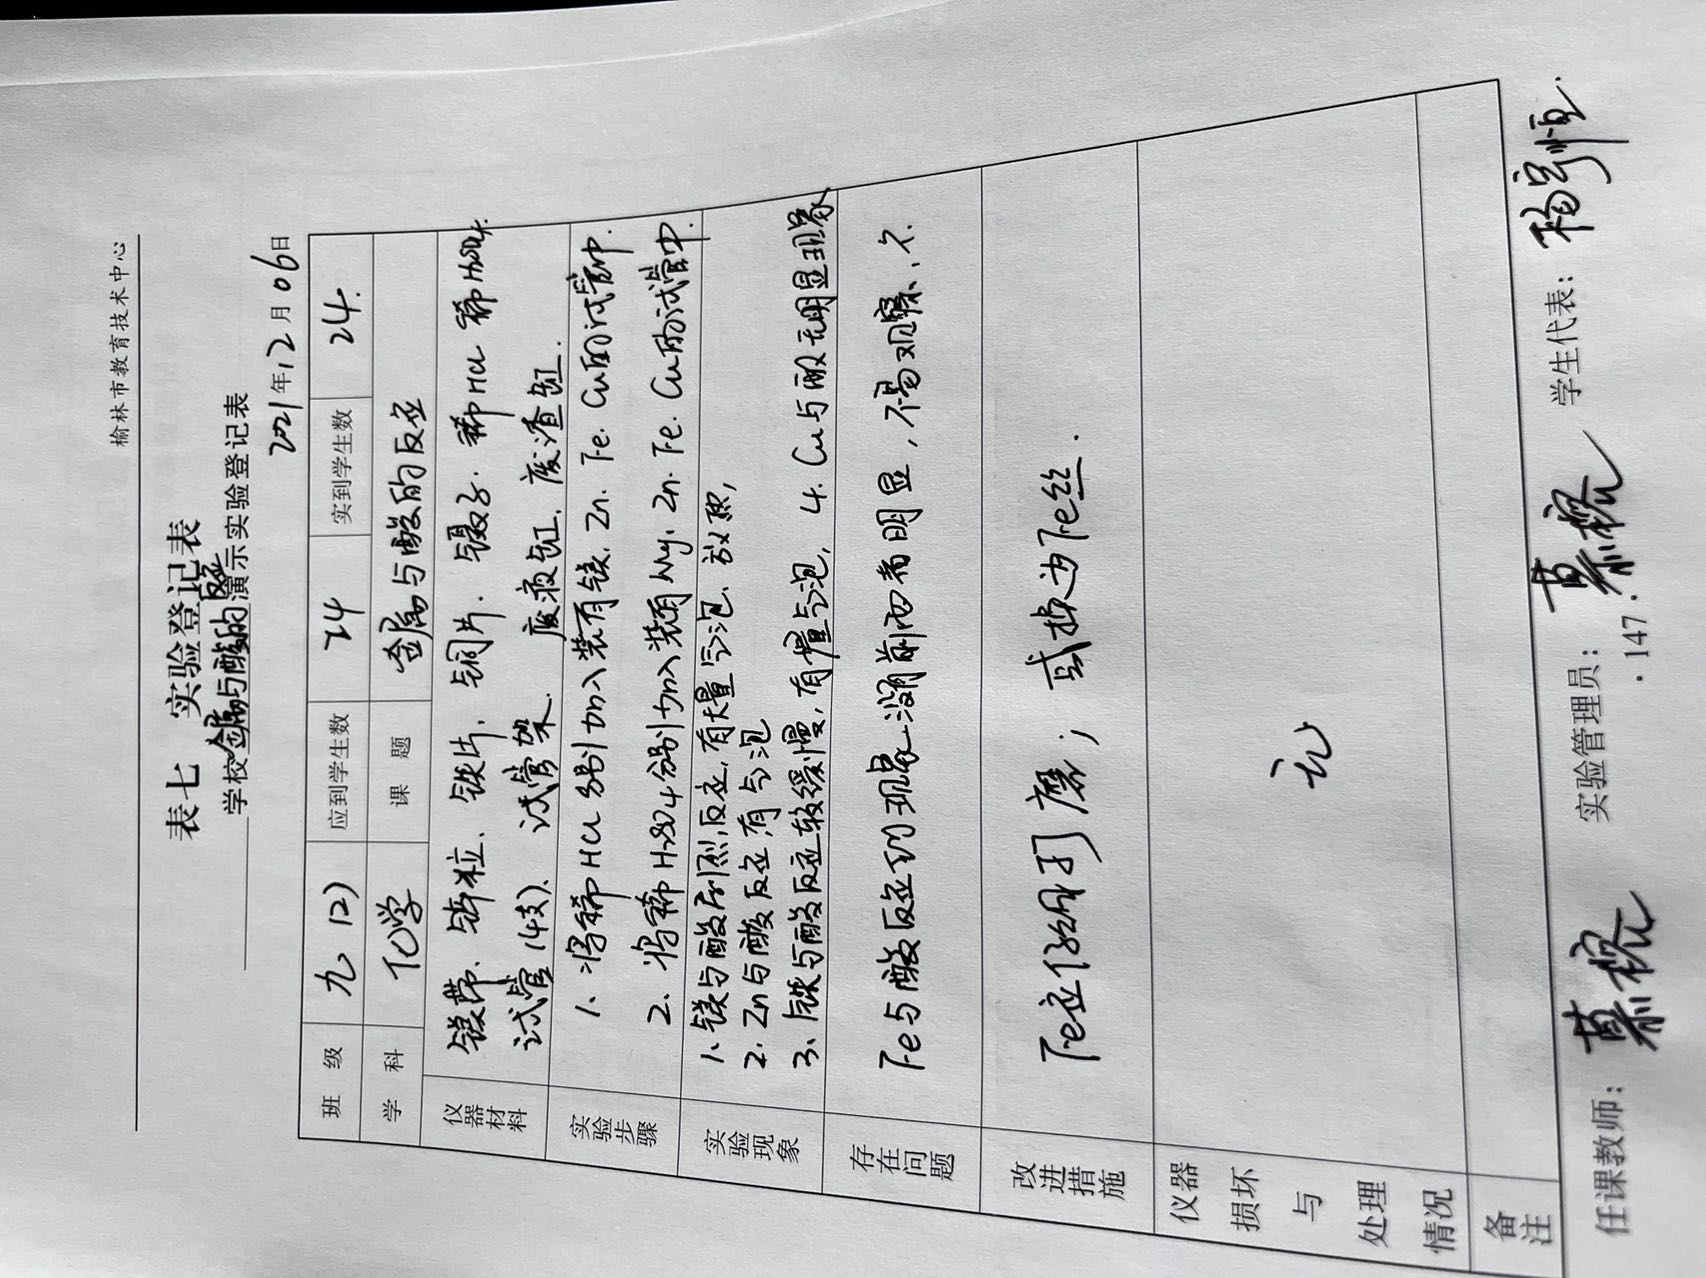 榆林市教育技术中心
表七 实验登记表
学校金属与酸的反应演示实验登记表
2021年12月06日
班级 九(2) 应到学生数 24 实到学生数 24.
学科 化学 课题 金属与酸的反应
仪器材料 镁带、锌粒、铁片、铜片、镊子、稀HCl 稀H2SO4.
试管(4支)、试管架 废液缸、废渣缸.
实验步骤 1、将稀HCl分别加入装有镁、Zn. Fe. Cu的试管中.
2、将稀H2SO4分别加入装有Mg. Zn. Fe. Cu的试管中.
实验现象 1、镁与酸剧烈反应,有大量气泡、放热,
2、Zn与酸反应有气泡
3、铁与酸反应较缓慢,有少量气泡, 4. Cu与酸无明显现象
存在问题 Fe与酸反应的现象没前两者明显,不易观察、
改进措施 Fe应仔细打磨; 或换为Fe丝.
仪器损坏与处理情况 无
备注
任课教师: 慕榕 实验管理员: 慕榕 学生代表:
·147·